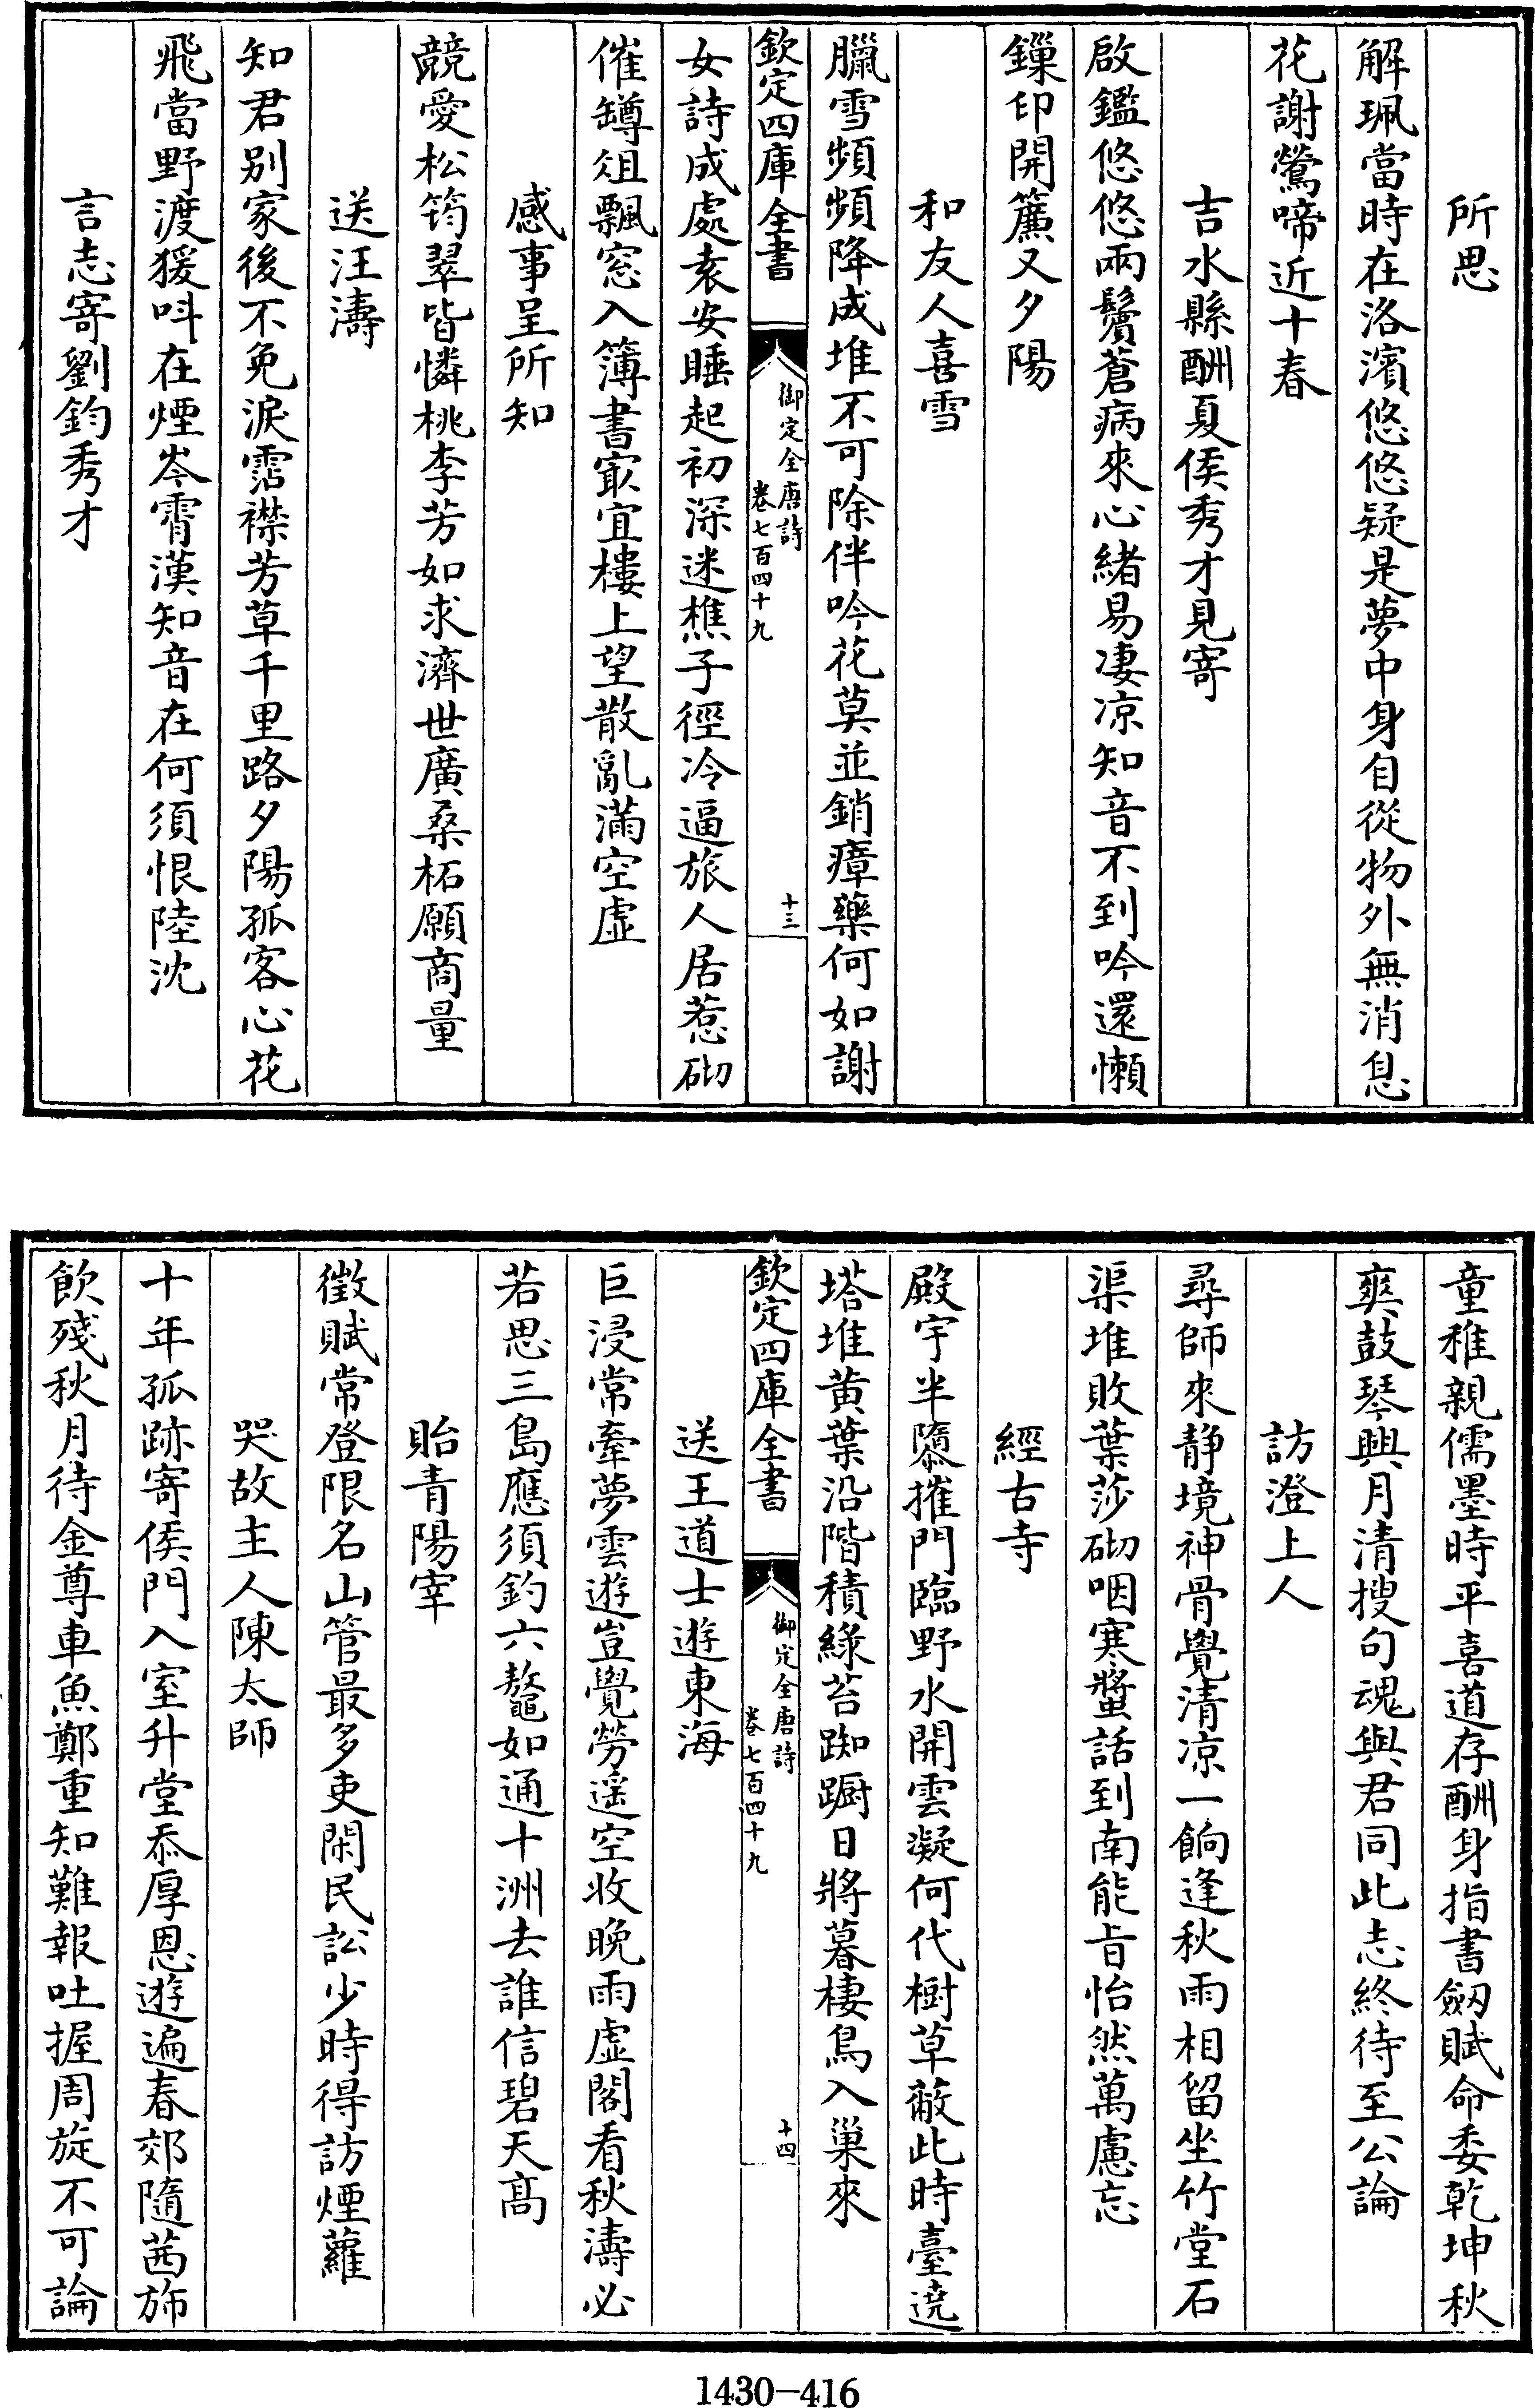 所思
解珮當時在洛濱悠悠疑是夢中身自從物外無消息
花謝鶯啼近十春
吉水縣酬夏侯秀才見寄
啟鑑悠悠兩鬢蒼病來心緒易凄凉知音不到吟還懶
鏁印開簾又夕陽
和友人喜雪
臘雪頻頻降成堆不可除伴吟花莫並銷瘴藥何如謝
欽定四庫全書
御定全唐詩
卷七百四十九
十三
女詩成處袁安睡起初深迷樵子徑冷逼旅人居惹砌
催罇俎飄窓入簿書㝡宜樓上望散亂滿空虛
感事呈所知
競愛松筠翠皆憐桃李芳如求濟世廣桑柘願商量
送汪濤
知君别家後不免淚霑襟芳草千里路夕陽孤客心花
飛當野渡猨呌在煙岑霄漢知音在何須恨陸沈
言志寄劉鈞秀才
童稚親儒墨時平喜道存酬身指書劒賦命委乾坤秋
爽鼓琴興月清搜句魂與君同此志終待至公論
訪澄上人
尋師來静境神骨覺清凉一餉逢秋雨相留坐竹堂石
渠堆敗葉莎砌咽寒螿話到南能旨怡然萬慮忘
經古寺
殿宇半隳摧門臨野水開雲凝何代樹草蔽此時臺遶
塔堆黄葉沿階積綠苔踟蹰日將暮棲鳥入巢來
欽定四庫全書
御定全唐詩
卷七百四十九
十四
送王道士遊東海
巨浸常牽夢雲遊豈覺勞遥空收晚雨虛閣看秋濤必
若思三島應須釣六鼇如通十洲去誰信碧天高
貽青陽宰
徵賦常登限名山管最多吏閑民訟少時得訪煙蘿
哭故主人陳太師
十年孤跡寄侯門入室升堂忝厚恩遊遍春郊隨茜斾
飲殘秋月待金尊車魚鄭重知難報吐握周旋不可論
1430-416